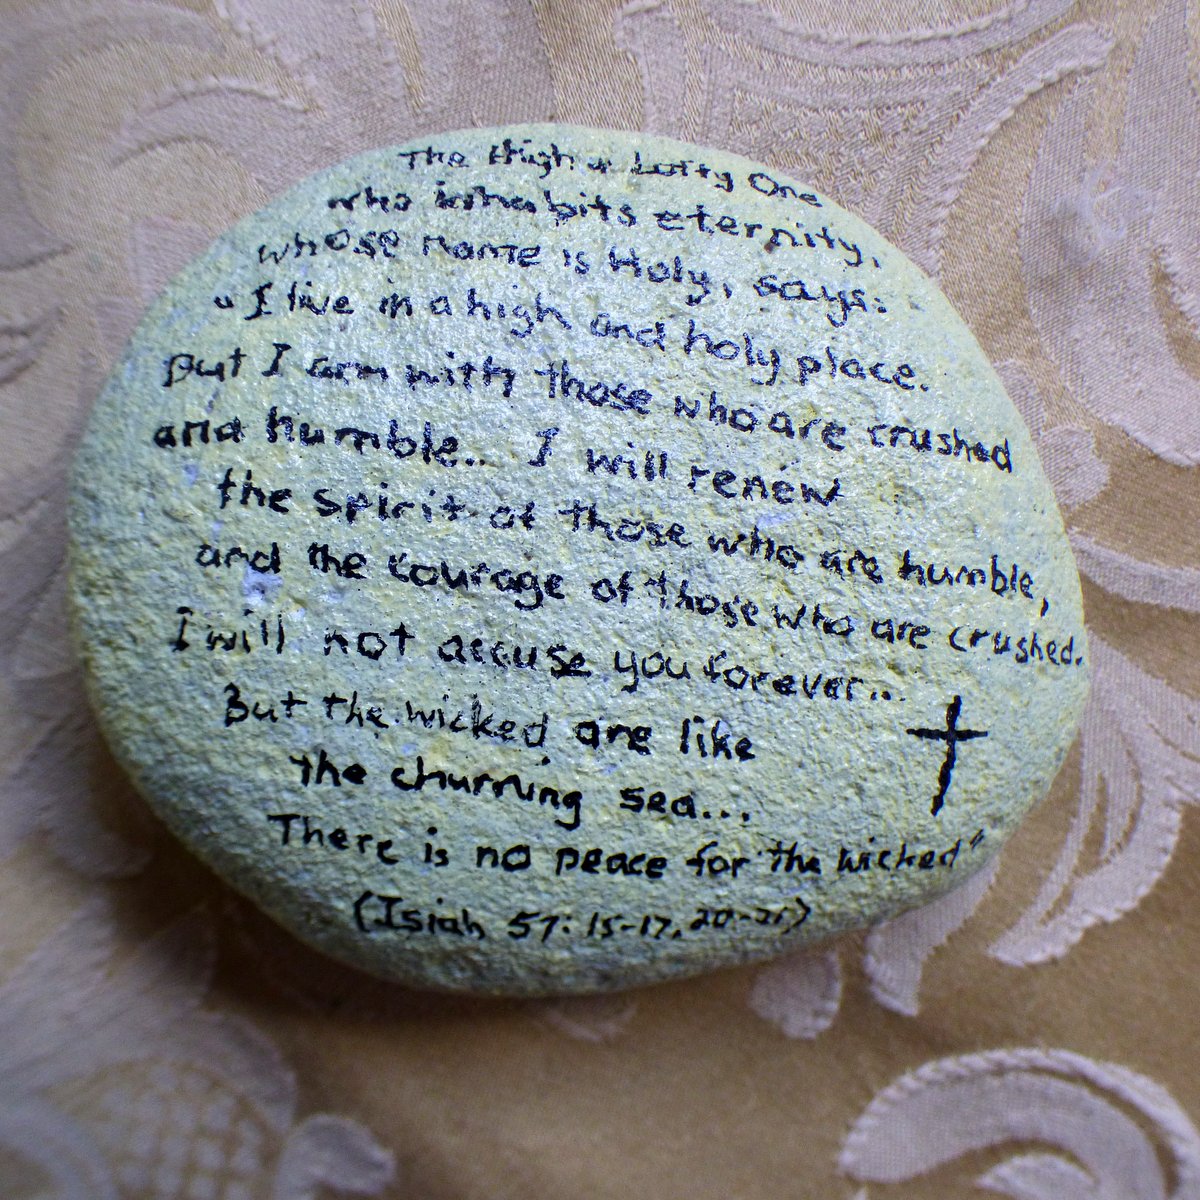 The High & Lofty One
who inhabits eternity,
whose name is Holy, says:
"I live in a high and holy place.
But I am with those who are crushed
and humble... I will renew
the spirit of those who are humble,
and the courage of those who are crushed.
I will not accuse you forever...
But the wicked are like
the churning sea...
There is no peace for the wicked"
(Isiah 57:15-17,20-21)